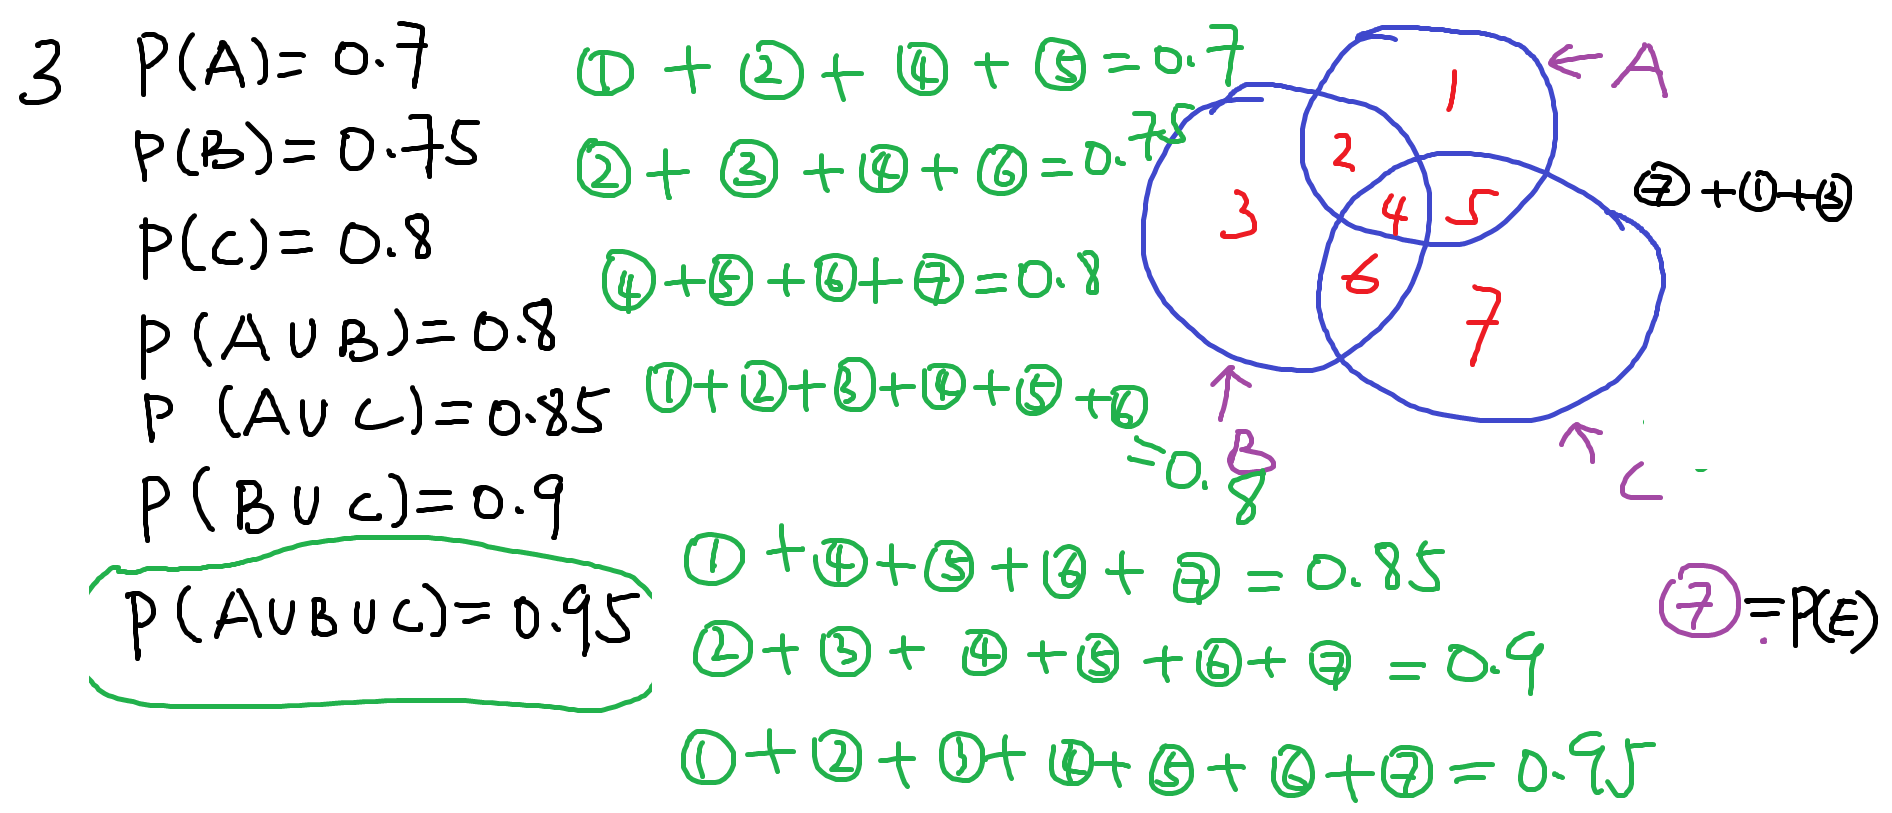 3 P(A)=0.7
P(B)=0.75
P(C)=0.8
P(A∪B)=0.8
P(A∪C)=0.85
P(B∪C)=0.9
P(A∪B∪C)=0.95
①+②+④+⑤=0.7
②+③+④+⑥=0.75
④+⑤+⑥+⑦=0.8
①+②+③+④+⑤+⑥
=0.8
①+④+⑤+⑥+⑦=0.85
②+③+④+⑤+⑥+⑦=0.9
①+②+③+④+⑤+⑥+⑦=0.95
A
1
2
3
4
5
6
7
B
C
⑦+①+③
⑦=P(E)